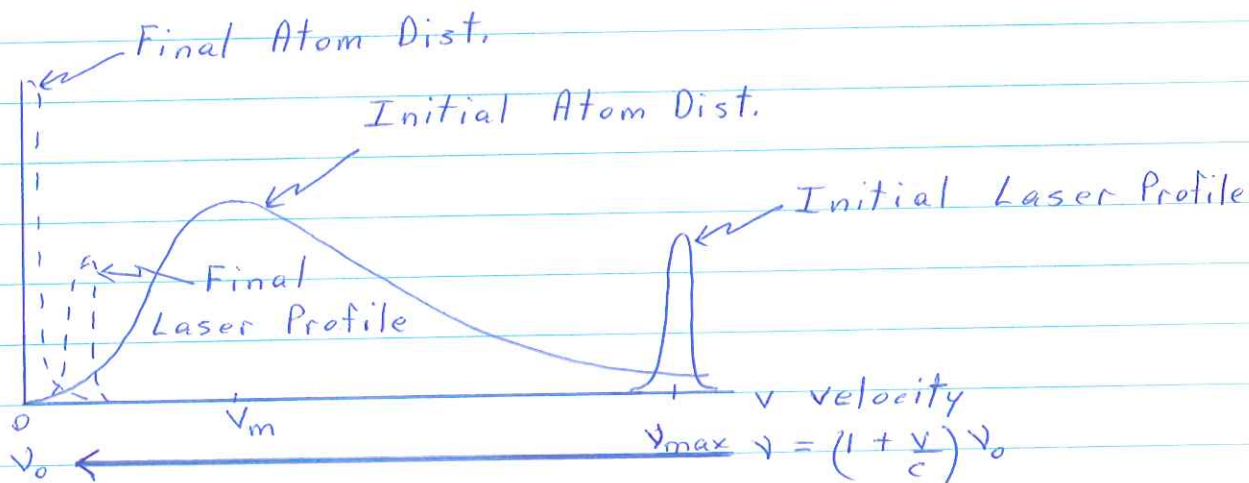 Final Atom Dist.
Initial Atom Dist.
Initial Laser Profile
Final
Laser Profile
v velocity
0
V_m
ν_0
ν_max ν = (1 + v/c) ν_0